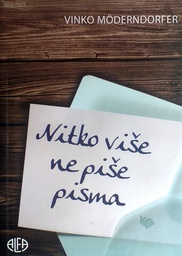 VINKO MÖDERNDORFER
Nitko više
ne piše
pisma
ALFA